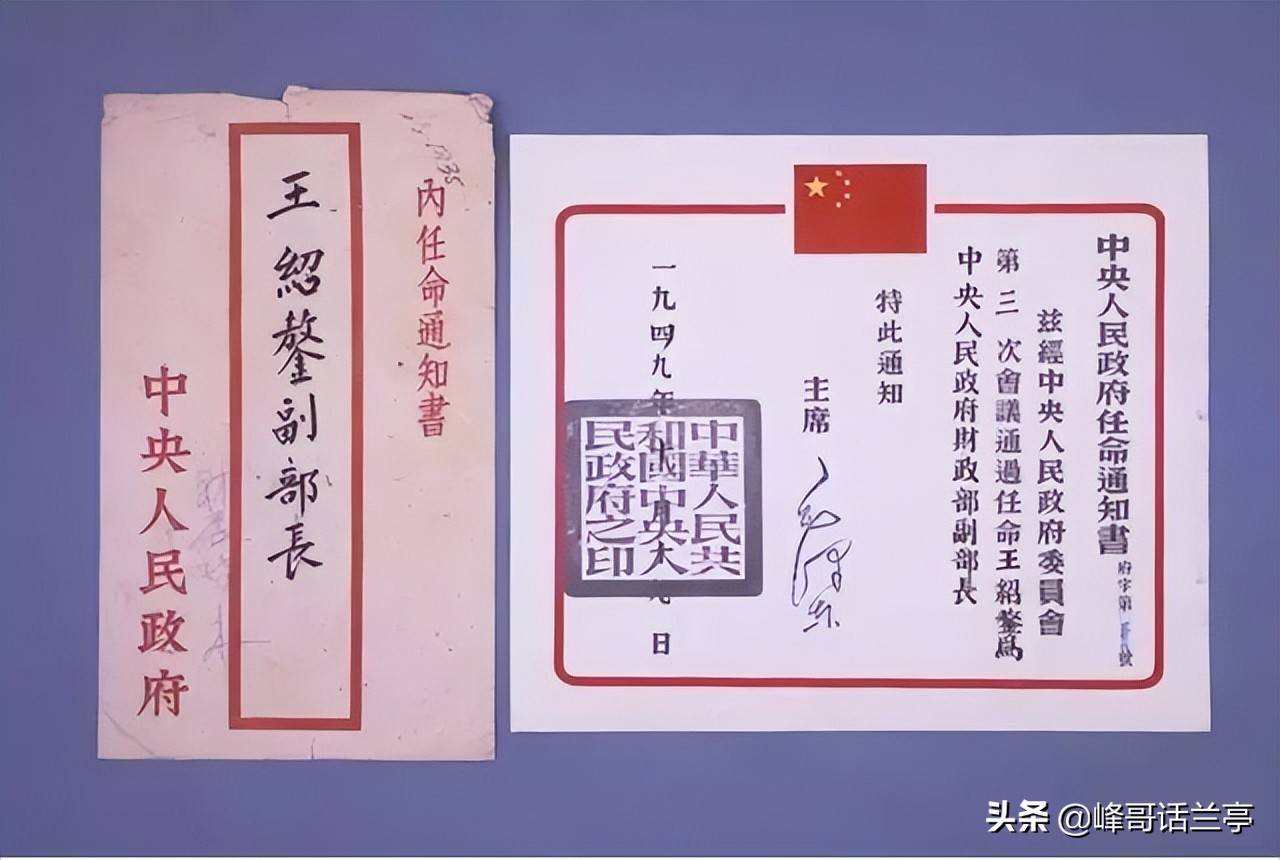 內任命通知書
王紹鏊副部長
中央人民政府
中央人民政府任命通知書
府字第 號
茲經中央人民政府委員會
第三次會議通過任命王紹鏊為
中央人民政府財政部副部长
特此通知
主席 毛泽东
一九四九年十月十九日
中華人民共
和國中央人
民政府之印
头条 @峰哥话兰亭